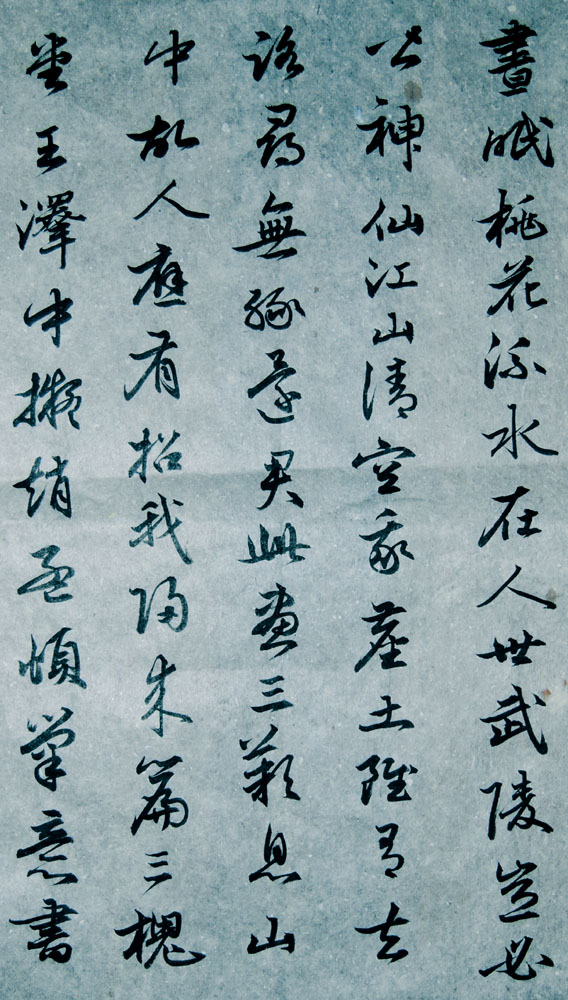 晝眠桃花流水在人世武陵豈必
皆神仙江山清空我塵土雖有去
路尋無緣還君此畫三歎息山
中故人應有招我歸來篇三槐
堂王澤中擬趙孟頫筆意書